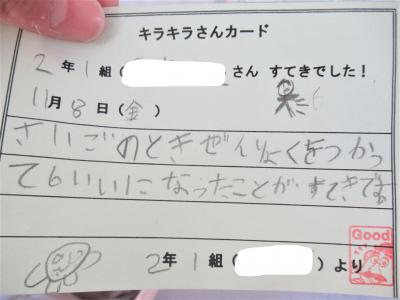 キラキラさんカード
2年1組( さん すてきでした!
11月8日(金)
さいごのときぜんりょくをつかっ
て6いいになったことがすてきです。
Good
2年1組( )より